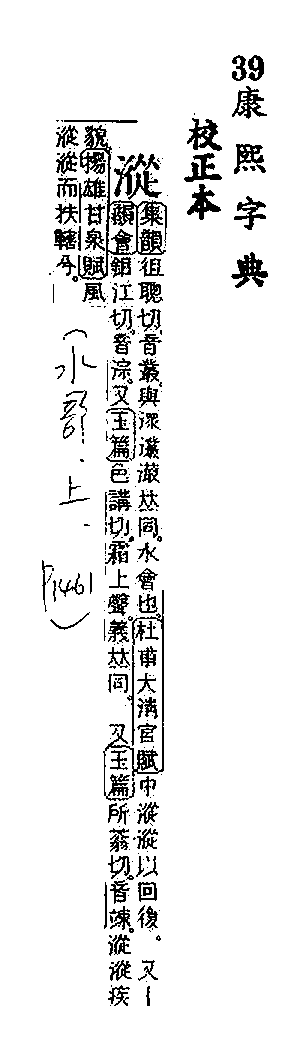 39康熙字典
校正本
漎
集韻徂聰切。音叢。與潀灇漴𠀤同。水會也。杜甫大清宮賦中漎漎以回復。又一
韻會鉏江切。音淙。又玉篇色講切。霜上聲。義𠀤同。又玉篇所蓊切。音竦。漎漎疾
貌。揚雄甘泉賦風
漎漎而扶轄兮。
(水部.上.
P1461)